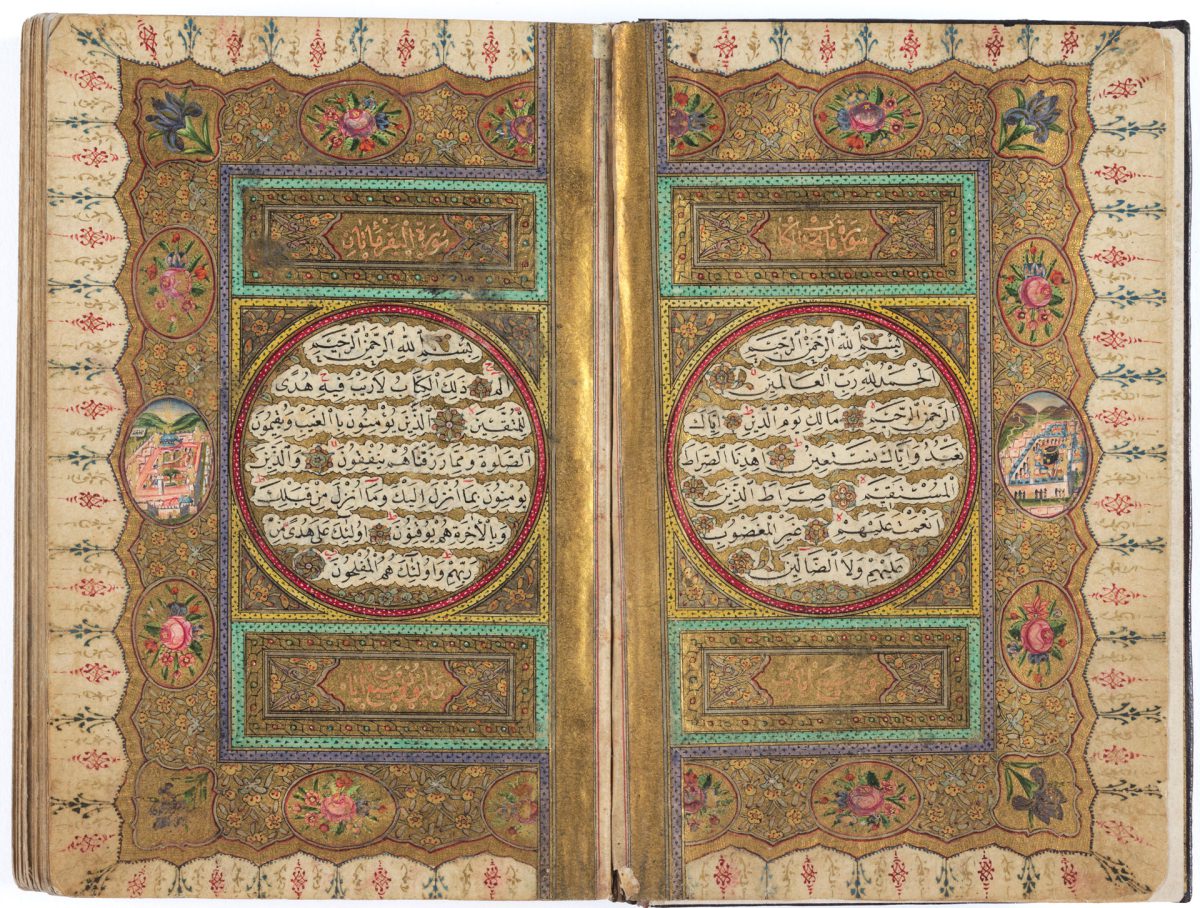 سورة فاتحة الكتاب
بسم الله الرحمن الرحيم
الحمد لله رب العالمين
الرحمن الرحيم مالك يوم الدين اياك
نعبد واياك نستعين اهدنا الصراط
المستقيم صراط الذين
انعمت عليهم غير المغضوب
عليهم ولا الضالين
سورة البقرة مائتان
بسم الله الرحمن الرحيم
الم ذلك الكتاب لا ريب فيه هدى
للمتقين الذين يؤمنون بالغيب ويقيمون
الصلوة ومما رزقناهم ينفقون والذين
يؤمنون بما انزل اليك وما انزل من قبلك
وبالاخرة هم يوقنون اولئك على هدى من
ربهم واولئك هم المفلحون